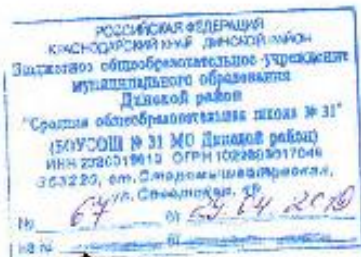 РОССИЙСКАЯ ФЕДЕРАЦИЯ
КРАСНОДАРСКИЙ КРАЙ ДИНСКОЙ РАЙОН
Бюджетное общеобразовательное учреждение
муниципального образования
Динской район
"Средняя общеобразовательная школа № 31"
(БОУСОШ № 31 МО Динской район)
ИНН ОГРН
353220, ст. Старомышастовская,
ул.
№ 67 от 29.04
на № от